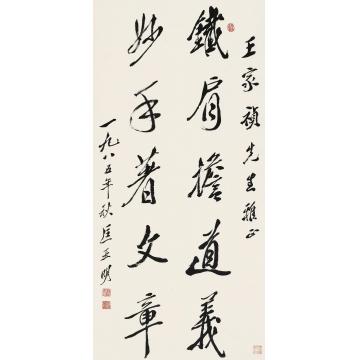 王家祯先生雅正
鐵肩擔道義
妙手著文章
一九八五年秋匡亚明